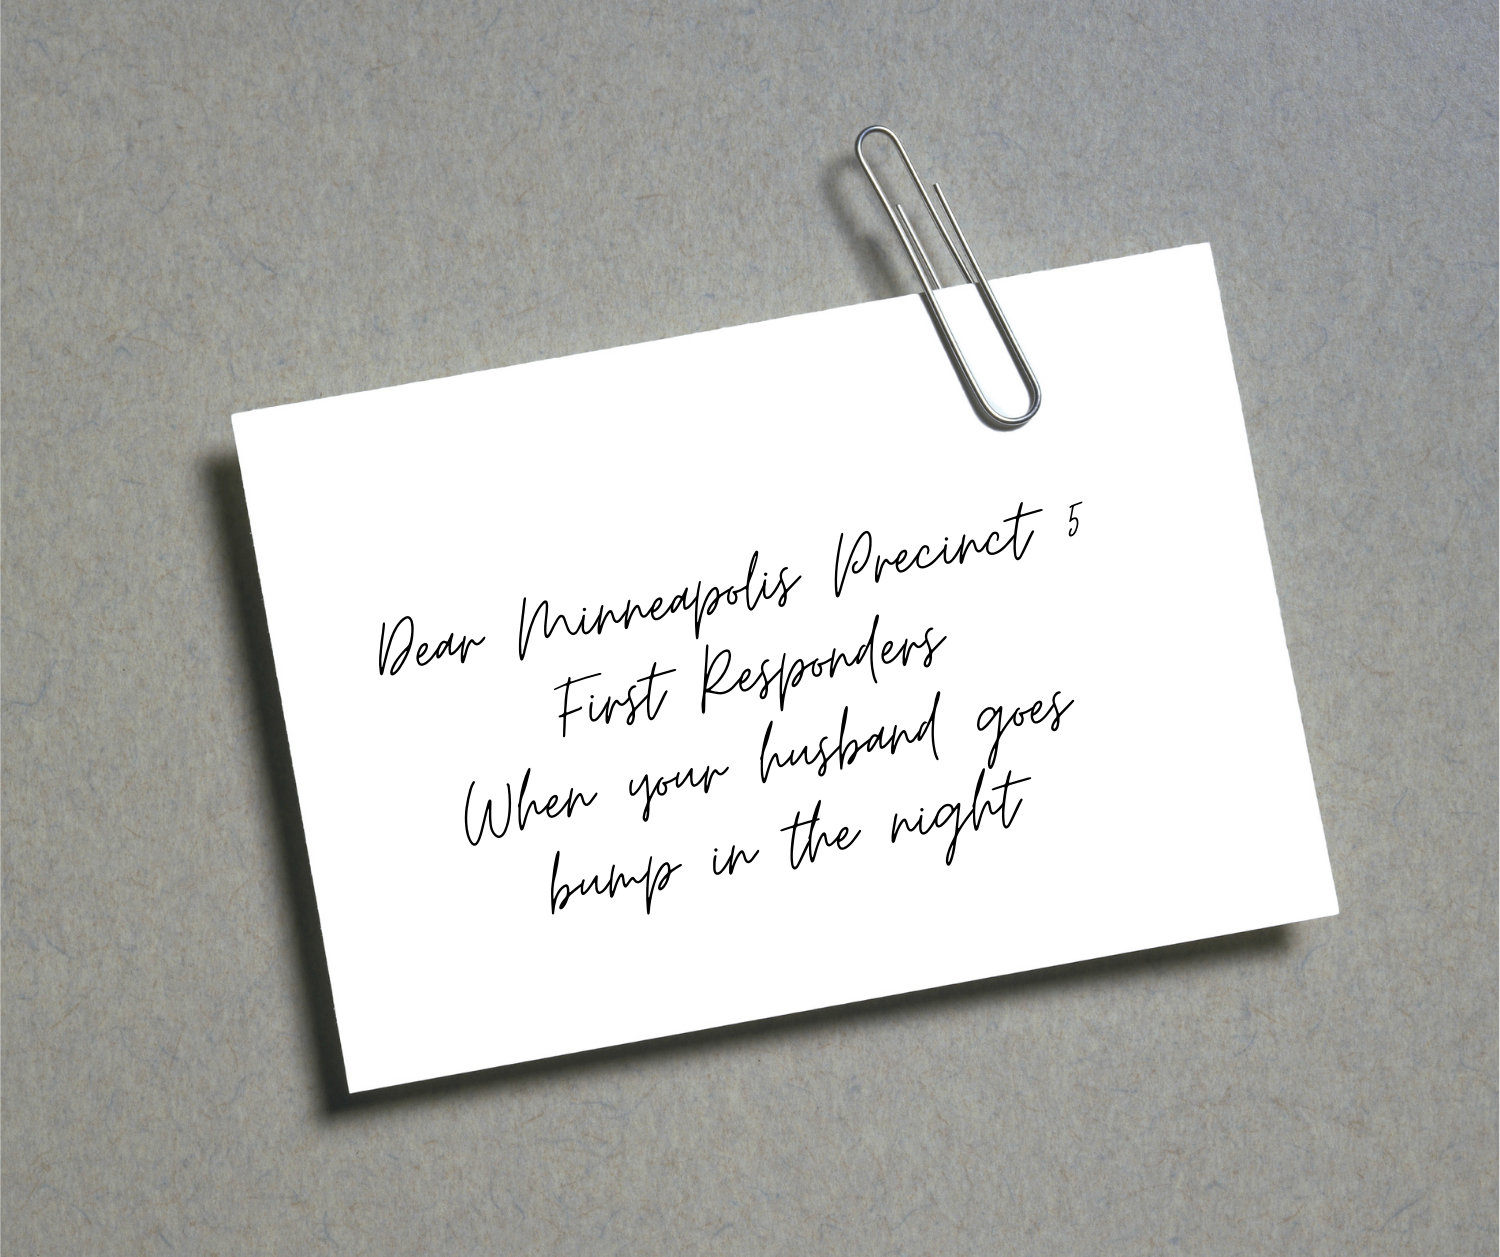 Dear Minneapolis Precinct 5
First Responders
When your husband goes
bump in the night